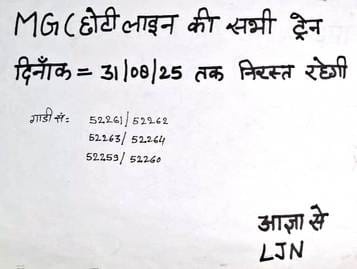 MG(छोटी लाइन की सभी ट्रेन
दिनाँक = 31/08/25 तक निरस्त रहेगी
गाडी सं॰ 52261/52262
52263/52264
52259/52260
आज्ञा से
LJN